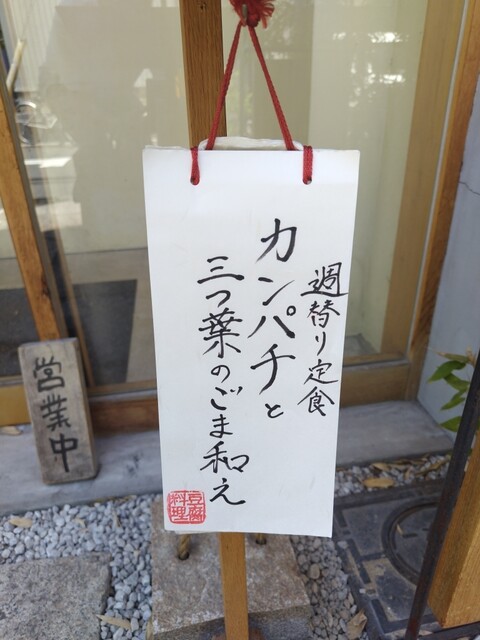 週替り定食
カンパチと
三つ葉のごま和え
豆腐
料理
営業中